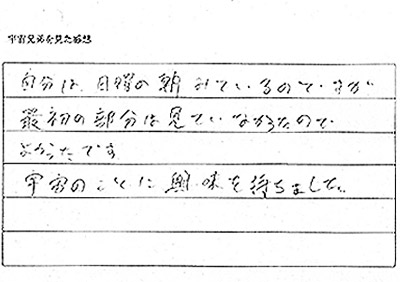 宇宙兄弟を見た感想
自分は、日曜の朝みているのですが
最初の部分は見ていなかったので
よかったです
宇宙のことに興味を持ちました。